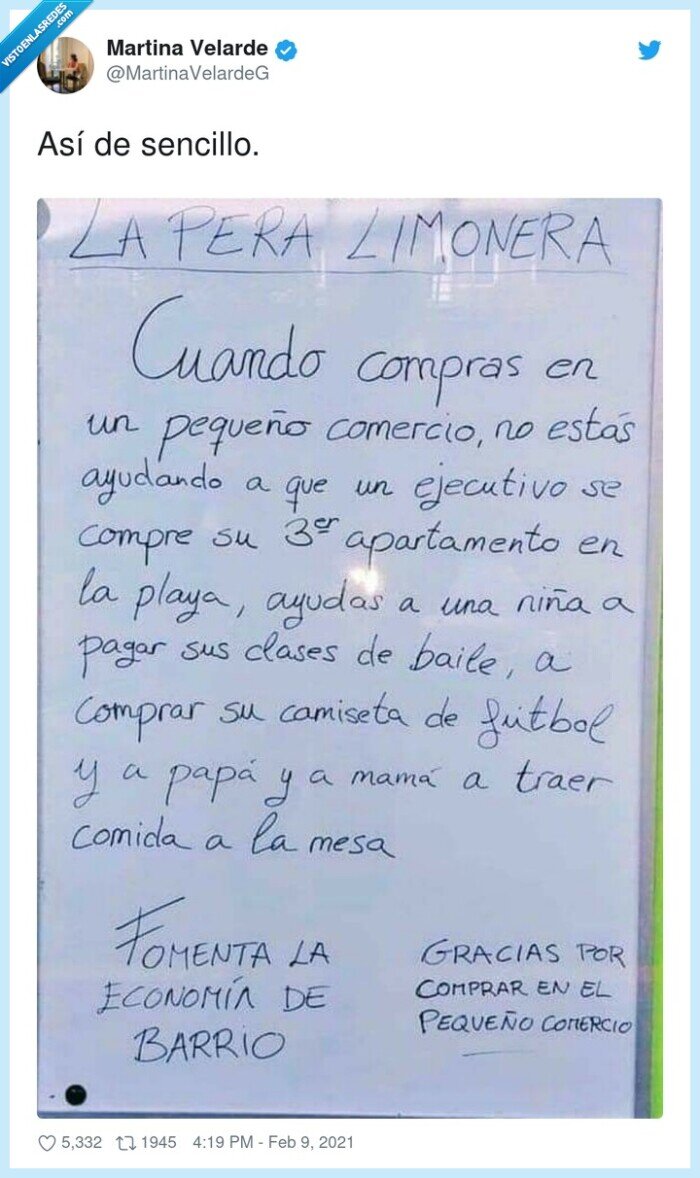 VISTOENLASREDES
.com
Martina Velarde
@MartinaVelardeG
Así de sencillo.
LA PERA LIMONERA
Cuando compras en
un pequeño comercio, no estás
ayudando a que un ejecutivo se
compre su 3er apartamento en
la playa, ayudas a una niña a
pagar sus clases de baile, a
comprar su camiseta de fútbol
y a papá y a mamá a traer
comida a la mesa
FOMENTA LA
ECONOMÍA DE
BARRIO
GRACIAS POR
COMPRAR EN EL
PEQUEÑO COMERCIO
5,332 1945 4:19 PM - Feb 9, 2021